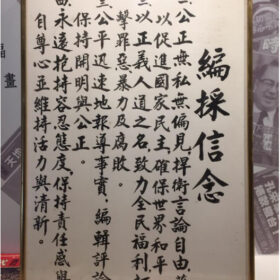 編採信念
公正無私無偏見，捍衛言論自由並
以促進國家民主，確保世界和平
以正義人道之名，致力全民福利，抨
擊罪惡暴力及腐敗。
公平迅速地報導事實，編輯評論
保持開明與公正。
永遠抱持容忍態度，保持責任感與
自尊心並維持活力與清新。
畫